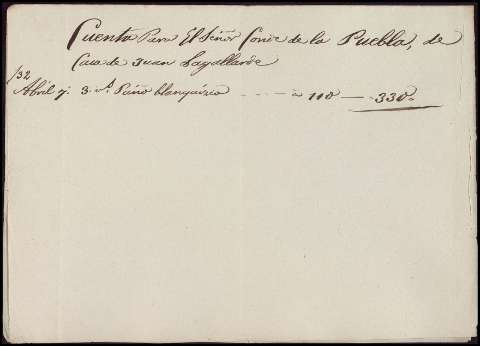 Cuenta Para El Señor Conde de la Puebla, de
Casa de Juan Lagallarde
/32
Abril 7. 3 v.s Paño blanquizco - - - - a 110 — 330„